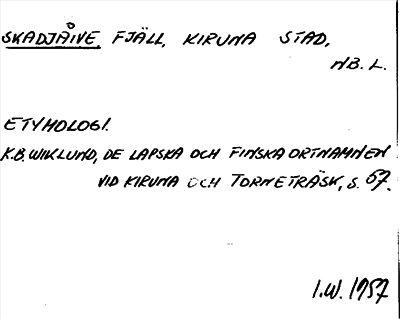 SKADJÅIVE, FJÄLL, KIRUNA STAD,
NB. L.
ETYMOLOGI.
K.B. WIKLUND, DE LAPSKA OCH FINSKA ORTNAMNEN
VID KIRUNA OCH TORNETRÄSK, S. 67.
I.W. 1957